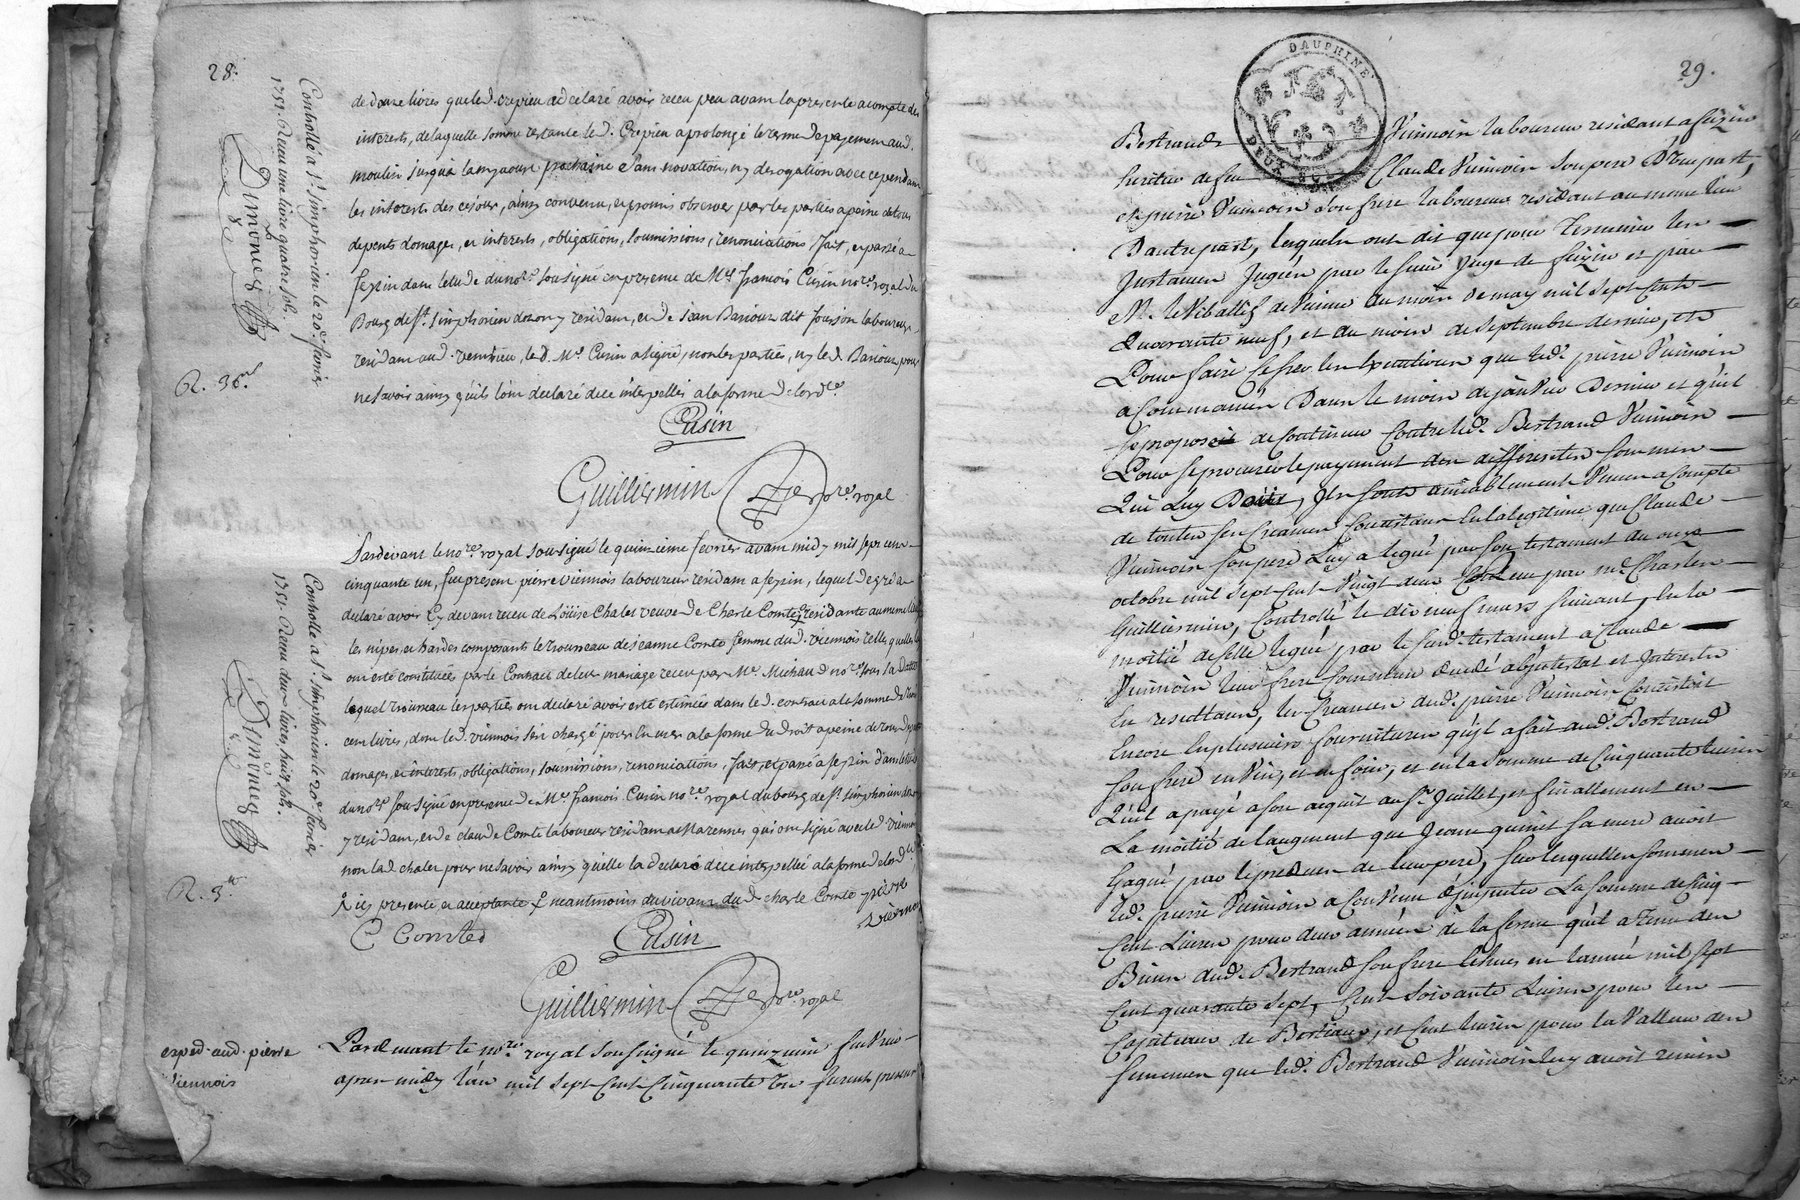 28.
de douze livres que led. crepieu a declaré avoir receu peu avant la presente a compte des
interests, de laquelle somme restante led. Crepieu a prolongé le terme de payement aud.
moulin jusqu'a la my aoust prochaine sans novation, ny derogation avec cependant
les interests des ce jour, ainsy convenu, et promis observer par les parties a peine de tous
depents domages, et interests, obligations, soumissions, renonciations fait, et passé a
feyzin dans letude du not.re soussigné en presence de M.e françois Cusin no.re royal du
Bourg de s.t simphorien dozon y residant, et de jean Barioux dit laboureur
residant aud. led. M.e Cusin a signé, non les parties, ny led. Barioux pour
ne savoir ainsy quils lont declaré de ce interpellés a la forme de lord.ce
Cusin
Guilliermin no.re royal
Controllé a s.t simphorien le 20.e fevrier
1751. Receu une livre quatre sols.
Dimonces
R. 36.s
Pardevant le no.re royal soussigné le quinzieme fevrier avant midy mil sept cent
cinquante un, fut present pierre viennois laboureur residant a feyzin, lequel de gré a
declaré avoir cy devant receu de Löuise Chalet veuve de Charle Comte residante au meme lieu
les nipes et hardes composants le trousseau de jeanne Comte femme dud. viennois telles quelles
ont esté constituées par le Contract de leur mariage receu par M.e Michaud no.re sous sa datte
lequel trousseau les parties ont declaré avoir esté estimées dans led. contract a la somme de
cent livres, dont led. viennois sest chargé pour en user a la forme du droit a peine de tous depents
domages, et interests, obligations, soumissions, renonciations, fait, et passé a feyzin dans letude
du not.re soussigné en presence de M.e francois Cusin no.re royal du bourg de s.t simphorien dozon
y residant, et de claude Comte laboureur residant a Marennes qui ont signé avec led. viennois
non lad. chalet pour ne savoir ainsy quelle la declaré de ce interpellée a la forme de lord.ce
icy presente, et acceptante neantmoins du vivant dud. charle Comte pierre
viennois
C Comte
Cusin
Guilliermin no.re royal
Controllé a s.t simphorien le 20.e fevrier
1751. Receu deux livres huit sols.
Dimonces
R. 3.
exped. aud. pierre
viennois
Pardevant le no.re royal soussigné le quinzieme fevrier
apres midy l'an mil sept cent cinquante un furent present
29.
DAUPHINÉ
DEUX SOLS
Bertrand Viennois laboureur residant a feizin
heritier de feu Claude Viennois son pere d'une part,
et pierre Viennois son frere laboureur residant au meme lieu
d'autre part, lesquels ont dit que pour terminer les
instances jugées par le sieur juge de feizin et par
M. le Viballif de Vienne du mois de may mil sept cents
quarante neuf, et du mois de septembre dernier, et
pour faire cesser les executions que led. pierre Viennois
a commancées dans le mois de janvier dernier et qu'il
se propose de continuer contre led. Bertrand Viennois
pour se procurer le payement des differentes sommes
qui luy doit, ils sont amiablement venus a compte
de toutes ses creances consistant en la legitime que Claude
Viennois son pere luy a legué par son testament du onze
octobre mil sept cent vingt deux receu par m.e Charles
Guilliermin, Controllé le dix neuf suivant, en la
moitié de celle leguée par le sud. testament a Claude
Viennois leur frere commun decedé abjntestat et jnterets
en resultants, les creances dud. pierre Viennois consistoit
encore en plusieurs fournitures qu'jl a fait aud. Bertrand
son frere en vin, et en foin, et en la somme de cinquante livres
qu'il a payé a son acquit au s.r Juillet, et finallement en
la moitié de laugment que jeanne quinet sa mere avoit
gagné par le predeces de leur pere, sur lesquelles sommes
led. pierre Viennois a convenu d'jmputer la somme de cinq
cent livres pour deux années de la ferme qu'il a tenu des
biens dud. Bertrand son frere echues en l'année mil sept
cent quarante sept, cent soixante livres pour les
de Bestiaux, et cent livres pour la valleur des
semences que led. Bertrand Viennois luy avoit remis